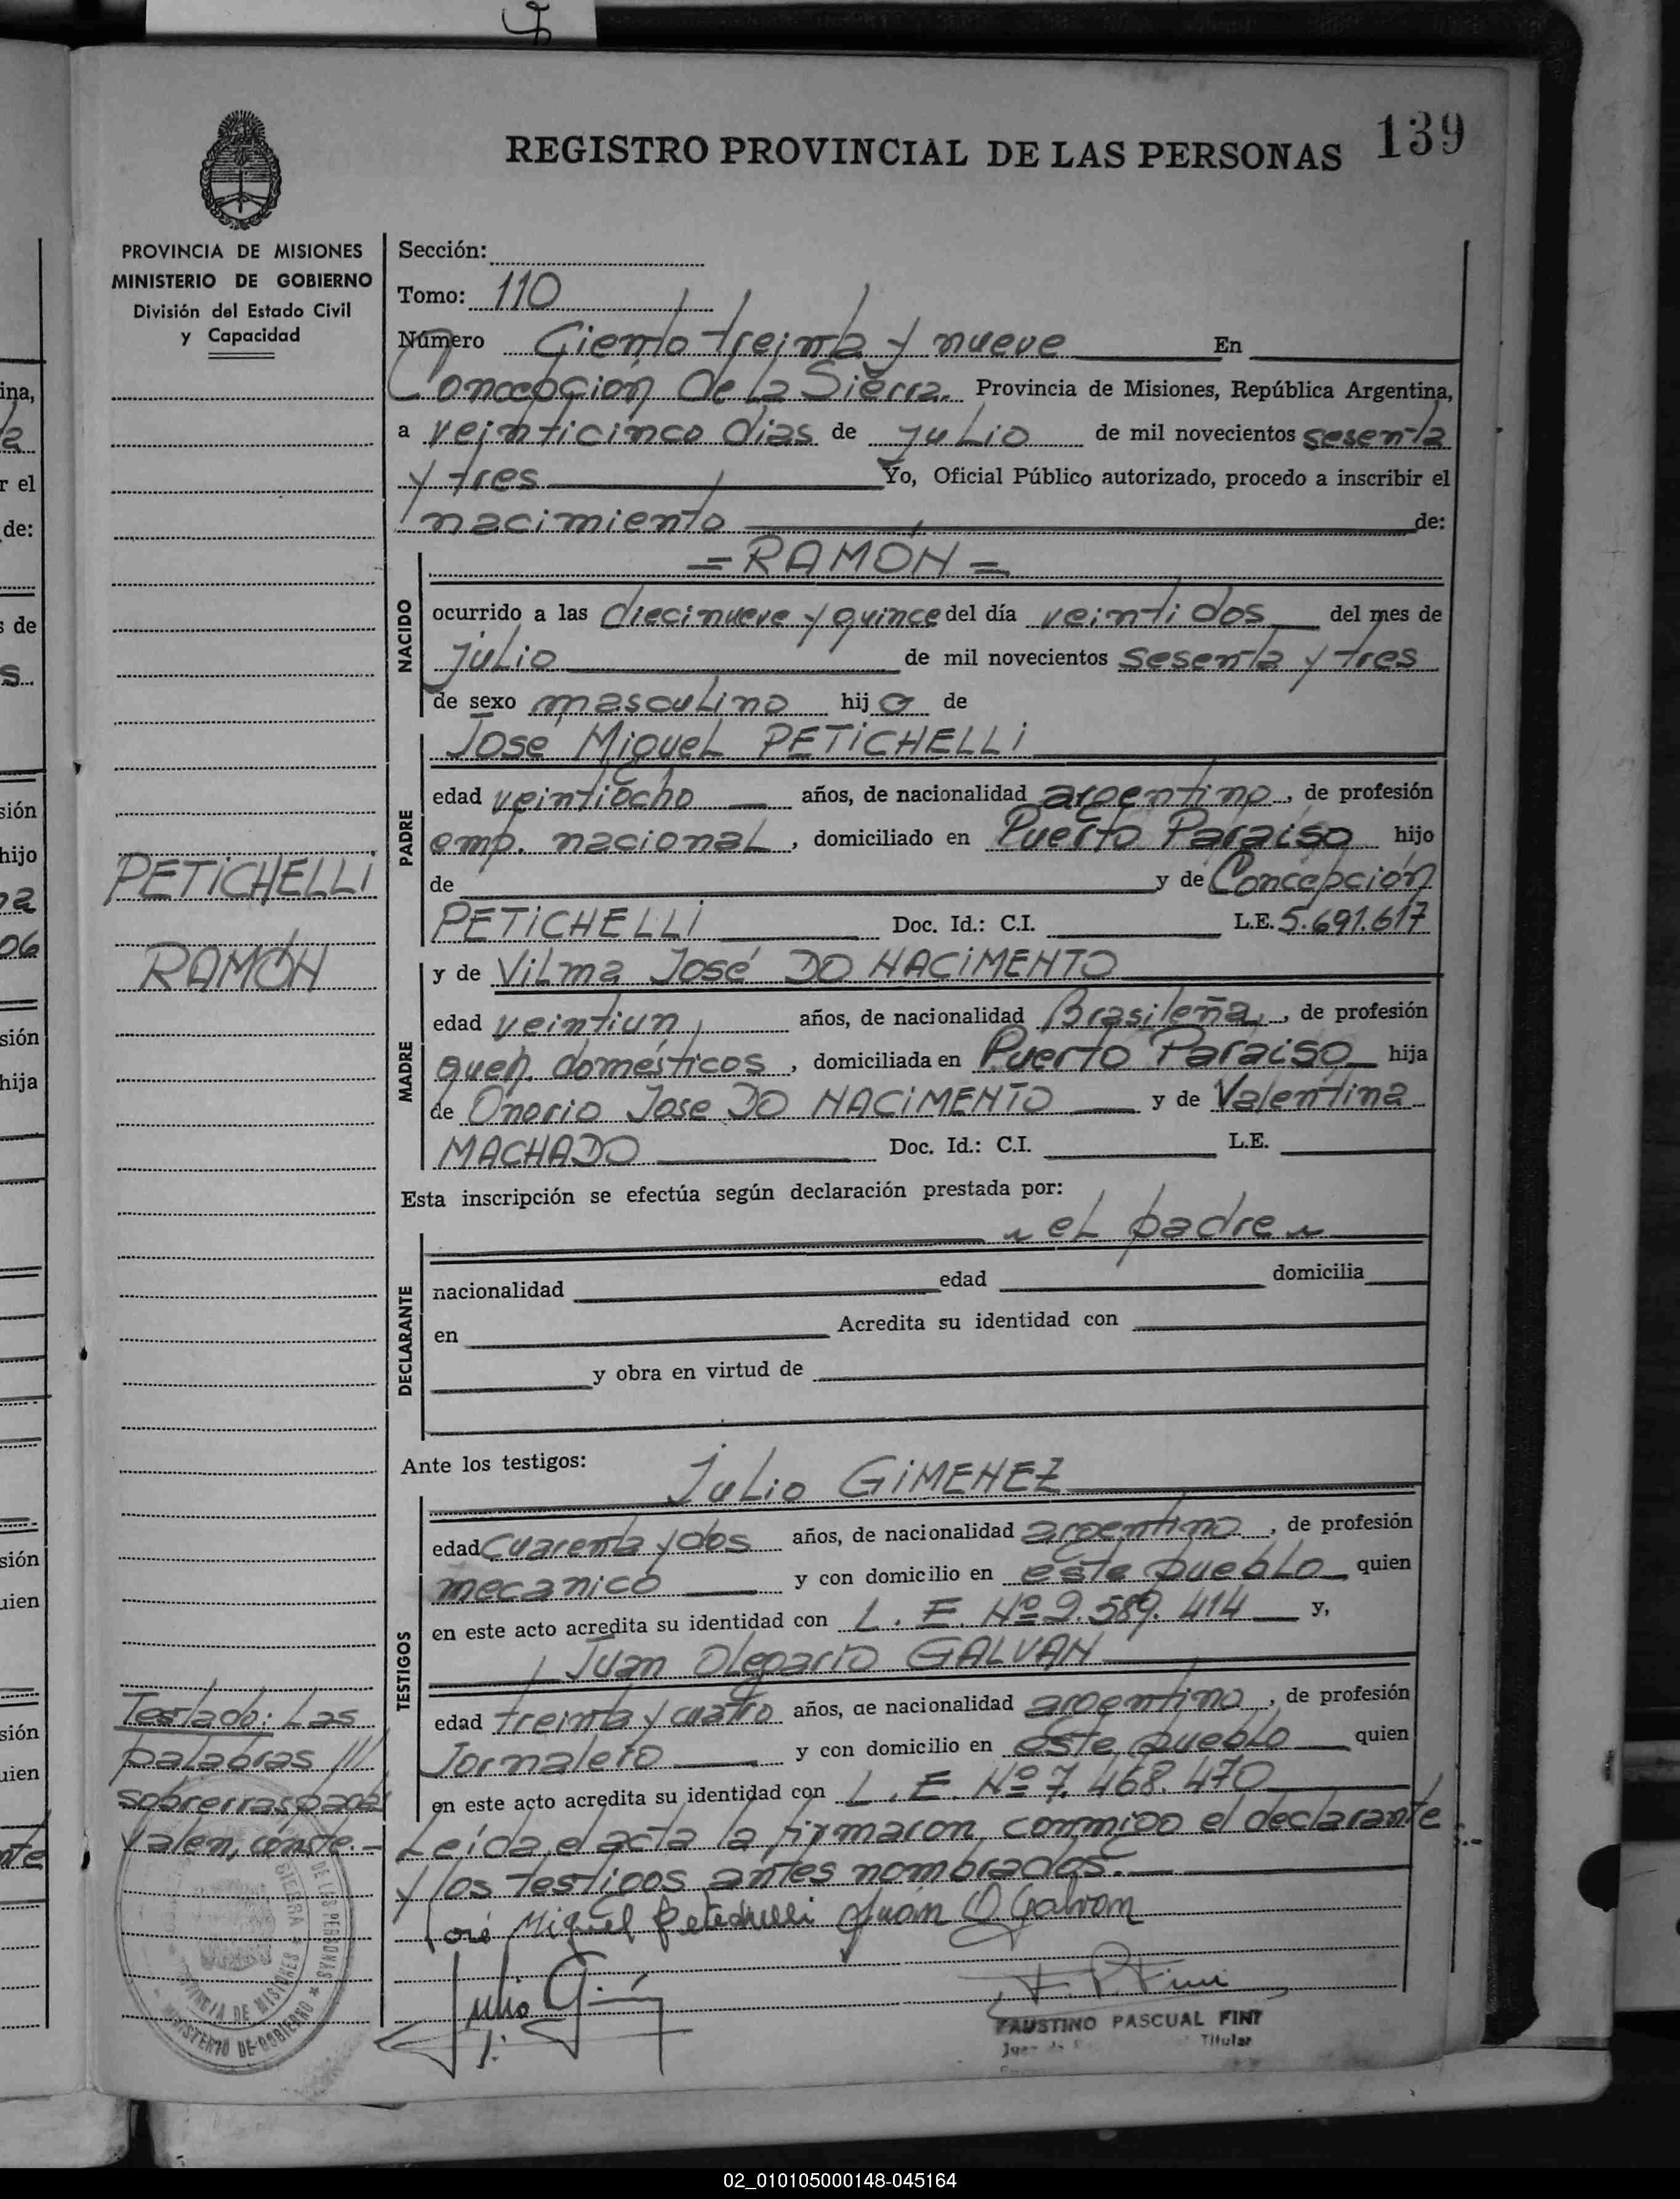 REGISTRO PROVINCIAL DE LAS PERSONAS 139
PROVINCIA DE MISIONES
MINISTERIO DE GOBIERNO
División del Estado Civil
y Capacidad
Sección:
Tomo: 110
Número Ciento treinta y nueve En
Concepción de la Sierra. Provincia de Misiones, República Argentina,
a veinticinco dias de julio de mil novecientos sesenta
y tres Yo, Oficial Público autorizado, procedo a inscribir el
nacimiento de:
= RAMÓN =
NACIDO
ocurrido a las diecinueve y quince del día veinti dos del mes de
julio de mil novecientos sesenta y tres
de sexo masculino hij o de
José Miguel PETICHELLI
PADRE
edad veintiocho años, de nacionalidad argentino, de profesión
emp. nacional, domiciliado en Puerto Paraiso hijo
de y de Concepción
PETICHELLI Doc. Id.: C.I. L.E. 5.691.617
PETICHELLI
RAMÓN
y de Vilma José DO NACIMENTO
MADRE
edad veintiun, años, de nacionalidad Brasileña, de profesión
queh. domésticos, domiciliada en Puerto Paraiso hija
de Onorio Jose DO NACIMENTO y de Valentina
MACHADO Doc. Id.: C.I. L.E.
Esta inscripción se efectúa según declaración prestada por:
el padre
DECLARANTE
nacionalidad edad domicilia
en Acredita su identidad con
y obra en virtud de
Ante los testigos:
Julio GIMENEZ
TESTIGOS
edad cuarenta y dos años, de nacionalidad argentino, de profesión
mecanico y con domicilio en este pueblo quien
en este acto acredita su identidad con L. E. Nº 9.589.414 y,
Juan Olegario GALVAN
edad treinta y cuatro años, de nacionalidad argentino, de profesión
Jornalero y con domicilio en este pueblo quien
en este acto acredita su identidad con L. E. Nº 7.468.470
Leída el acta la firmaron conmigo el declarante
y los testigos antes nombrados.
Testado: Las
palabras ///
sobrerraspadas
valen, conste.-
José Miguel Petichelli Juan O Galvan
Julio
F. P. Fini
FAUSTINO PASCUAL FINI
Titular
DE LAS PERSONAS
SIERRA
PROVINCIA DE MISIONES
MINISTERIO DE GOBIERNO
02_010105000148-045164